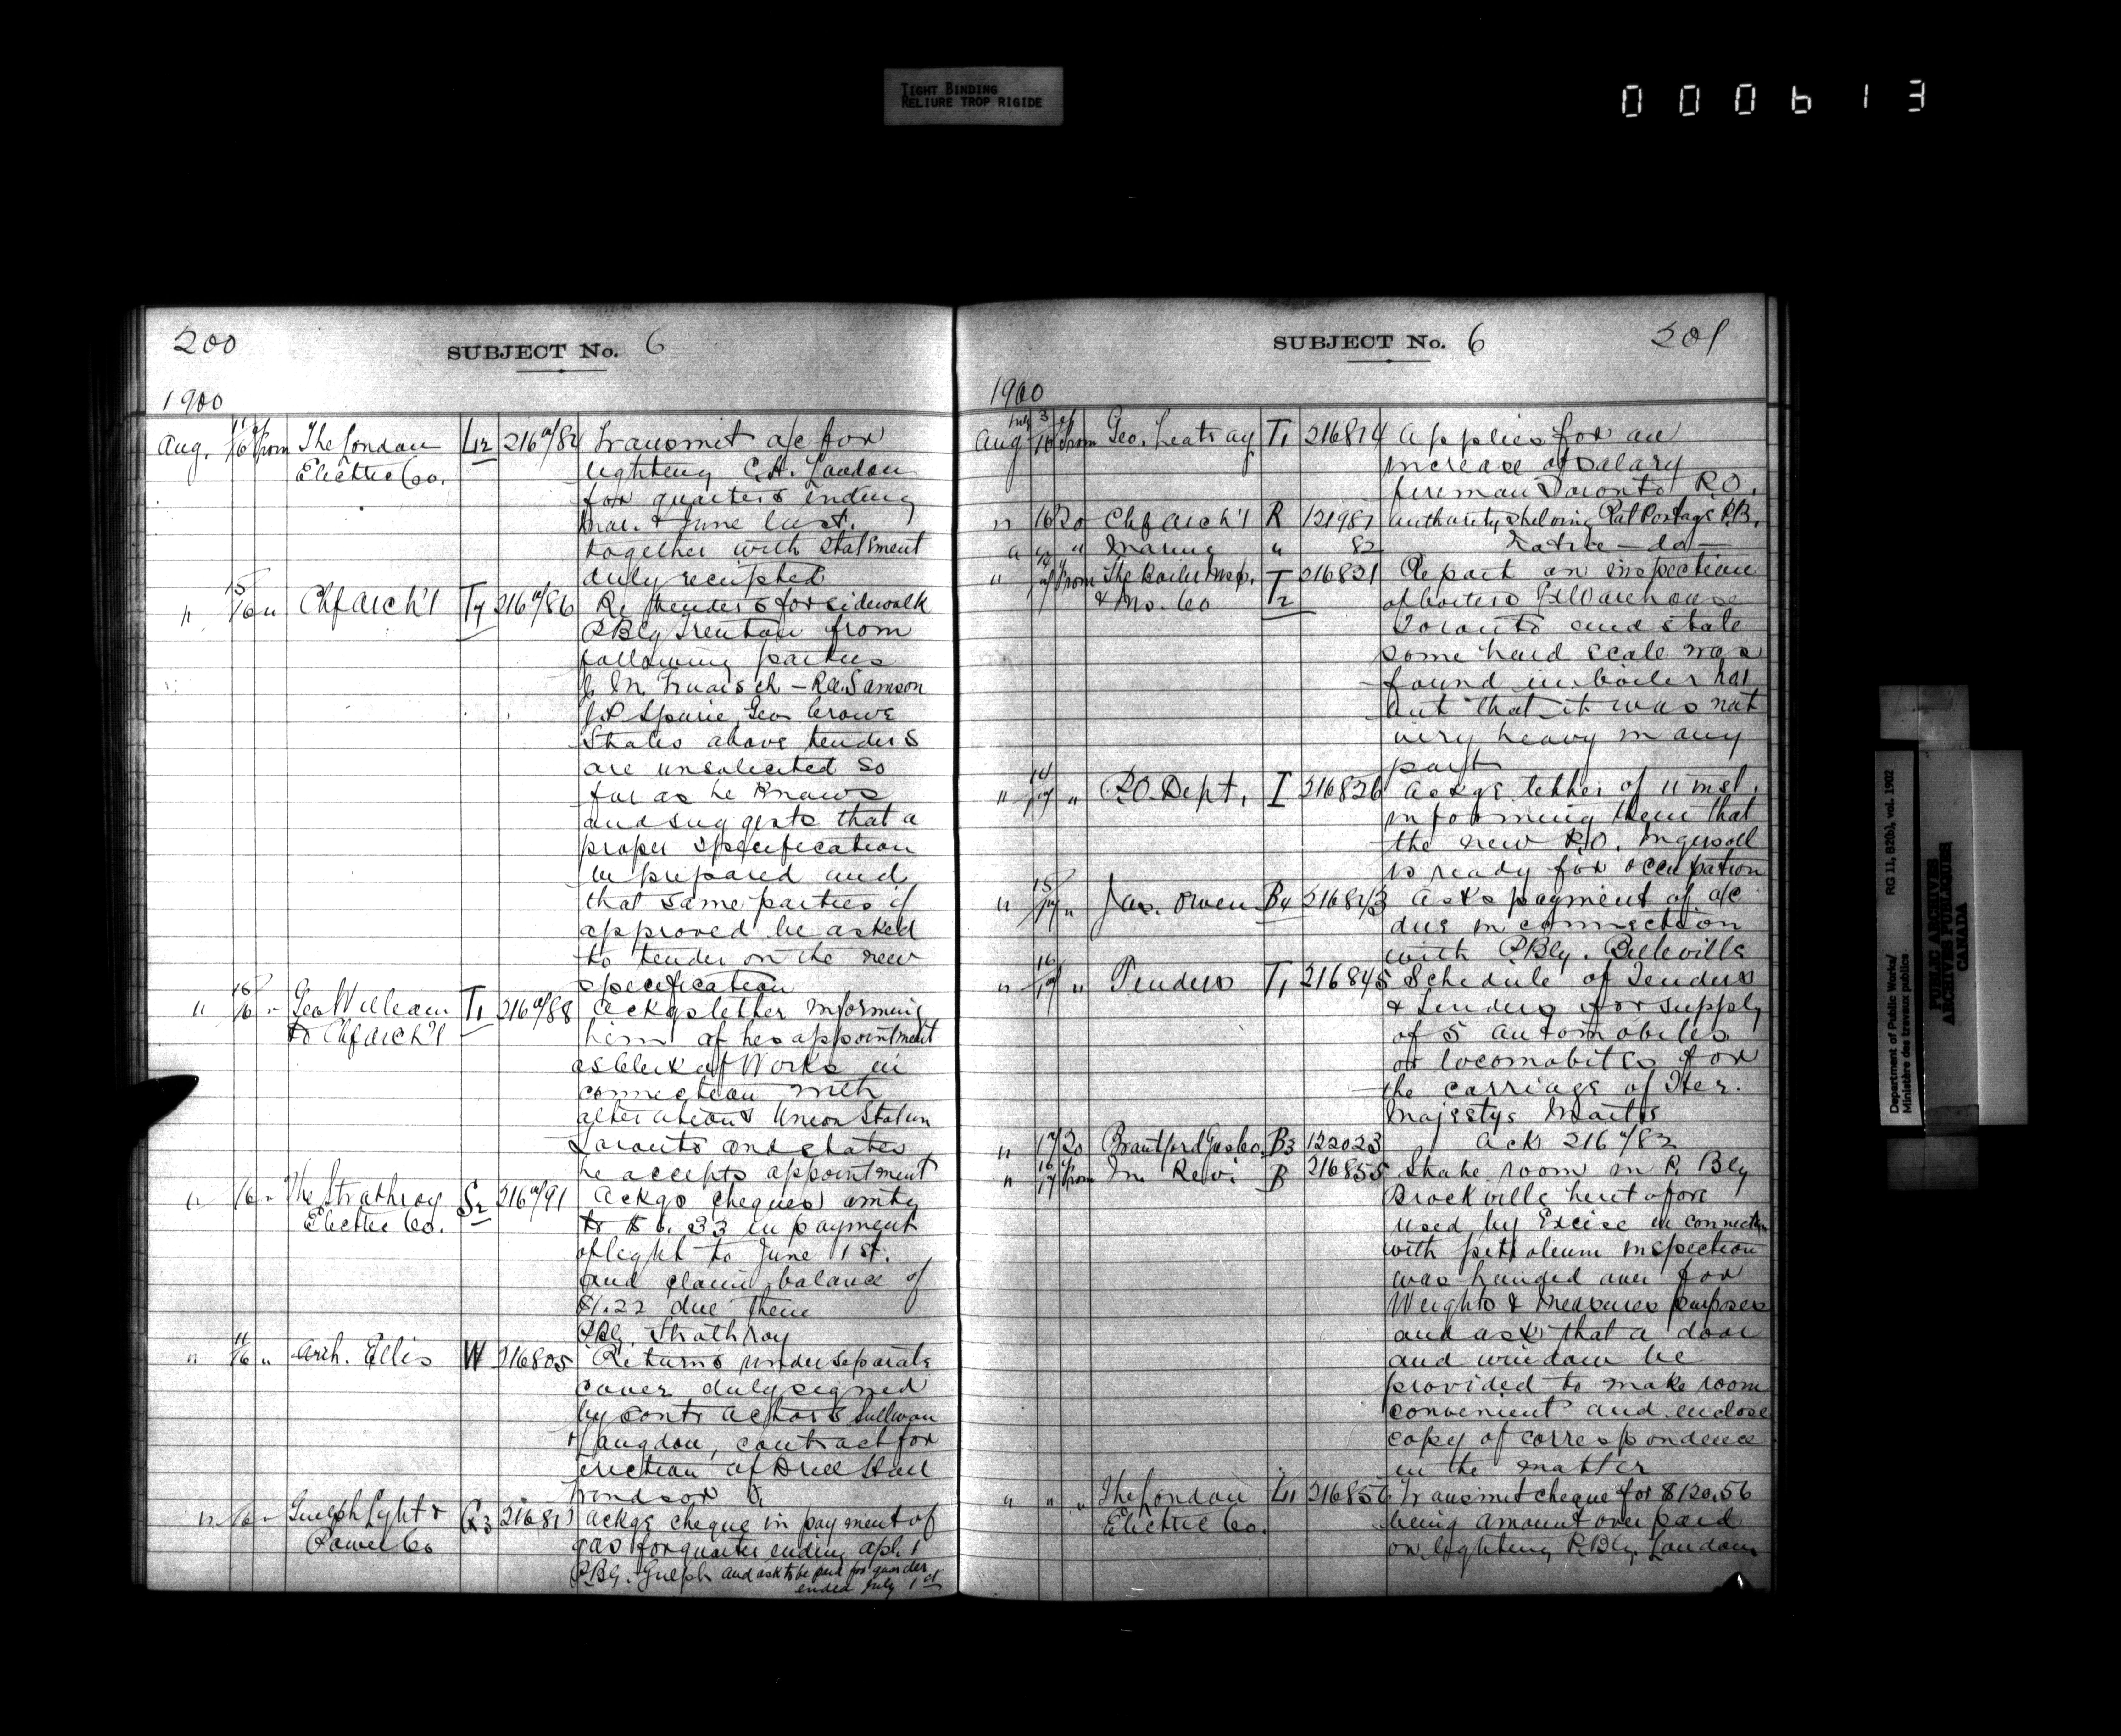 TIGHT BINDING
RELIURE TROP RIGIDE
000613
200
SUBJECT No. 6
1900
Aug. 11/16 of from The London L12 216782 Transmit a/c for
Electric Co. lighting C.H. London
for quarters ending
Mar. & June last.
together with statement
duly receipted
" 15/16 " Chf Arch't T7 216786 Re tenders for sidewalk
P Blg Trenton from
following parties
J. M. - R.A. Samson
J.P. Geo Crowe
States above tenders
are unsolicited so
far as he knows
and suggests that a
proper specification
be prepared and
that same parties if
approved be asked
to tender on the new
specification
" 15/16 " Geo William T1 216788 Ackgs letter informing
to Chf Arch't him of his appointment
as Clerk of Works in
connection with
alterations Union Station
Toronto and states
he accepts appointment
" 16 " The Strathroy S2 216791 Ackgs cheques amtg
Electric Co. to $6.33 in payment
of light to June 1st.
and claim balance of
$1.22 due them
P Blg. Strathroy
" 11/16 " Arch. Ellis W 216805 Returns under separate
cover duly signed
by contractors Sullivan
& Langdon, contract for
erection of Drill Hall
Windsor O.
" 16 " Guelph Light & G3 216811 Ackgs cheque in payment of
Power Co gas for quarter ending Apl. 1
P.Blg. Guelph and ask to be paid for quarter
ended July 1st
SUBJECT No. 6
201
1900
July 3 of
Aug 16 from Geo. T1 216814 Applies for an
increase of salary
fireman Toronto P.O.
" 16 To Chf Arch't R 121981 Authority shelving Rat Portage P.B.
" " " " 82 Native - do -
" 14/17 of from The Boiler Insp. T2 216821 Report on inspection
& Ins. Co of boilers Ex Warehouse
Toronto and state
some hard scale was
found in boiler has
but that it was not
very heavy in any
part
" 14/17 " P.O. Dept. I 216826 Ackge letter of 11 inst.
informing them that
the new P.O. Ingersoll
is ready for occupation
" 15/17 " Jas. Owen B4 216843 Asks payment of a/c
due in connection
with P Blg. Belleville
" 16/17 " Tenders T1 216845 Schedule of Tenders
& Tenders for supply
of 5 automobiles
or locomobiles for
the carriage of Her.
Majestys Mails
" 17 To Brantford Gas Co. B3 122023 Ack 216782
" 16/17 of from In. Revi B 216855 State room in P. Blg
Brockville heretofore
used by Excise in connection
with petroleum inspection
was handed over for
Weights & Measures purposes
and ask that a door
and window be
provided to make room
convenient and enclose
copy of correspondence
in the matter
" " " The London L11 216856 Transmit cheque for $120.56
Electric Co. being amount over paid
on lighting P. Blg. London
Department of Public Works/ RG 11, B2(b), vol. 1902
Ministère des travaux publics
PUBLIC ARCHIVES
ARCHIVES PUBLIQUES
CANADA